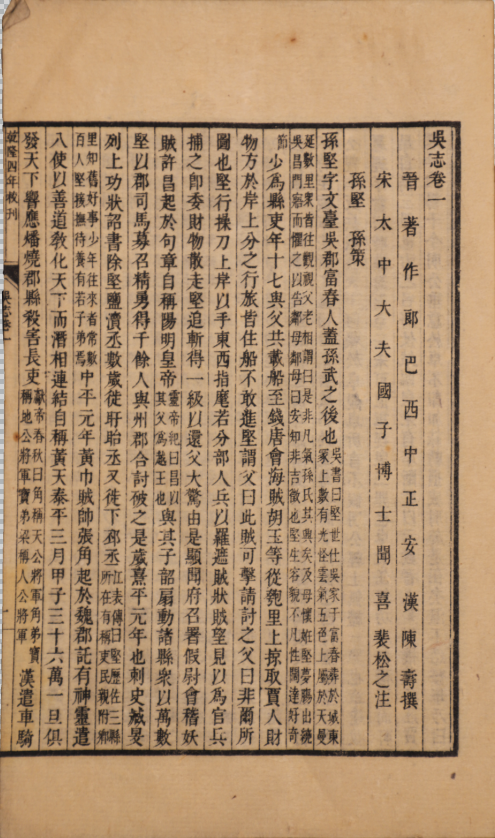 吳志卷一
晉著作郎巴西中正安漢陳壽撰
宋太中大夫國子博士聞喜裴松之注
孫堅 孫策
孫堅字文臺吳郡富春人蓋孫武之後也 吳書曰堅世仕吳家于富春葬於城東冢上數有光怪雲氣五色上屬於天曼
延數里衆皆往觀視父老相謂曰是非凡氣孫氏其興矣及母懷姙堅夢腸出繞吳昌門寤而懼之以告鄰母鄰母曰安知非吉徵也堅生容貌不凡性闊達好奇
節 少爲縣吏年十七與父共載船至錢唐會海賊胡玉等從匏里上掠取賈人財
物方於岸上分之行旅皆住船不敢進堅謂父曰此賊可擊請討之父曰非爾所
圖也堅行操刀上岸以手東西指麾若分部人兵以羅遮賊狀賊望見以爲官兵
捕之卽委財物散走堅追斬得一級以還父大驚由是顯聞府召署假尉會稽妖
賊許昌起於句章自稱陽明皇帝 靈帝紀曰昌以其父爲越王也 與其子韶扇動諸縣衆以萬數
堅以郡司馬募召精勇得千餘人與州郡合討破之是歲熹平元年也刺史臧旻
列上功狀詔書除堅鹽瀆丞數歲徙盱眙丞又徙下邳丞 江表傳曰堅歷佐三縣所在有稱吏民親附鄉
里知舊好事少年往來者常數百人堅接撫待養有若子弟焉 中平元年黃巾賊帥張角起於魏郡託有神靈遣
八使以善道敎化天下而潛相連結自稱黃天泰平三月甲子三十六萬一旦俱
發天下響應燔燒郡縣殺害長吏 獻帝春秋曰角稱天公將軍角弟寶稱地公將軍寶弟梁稱人公將軍 漢遣車騎
乾隆四年校刊 吳志卷一